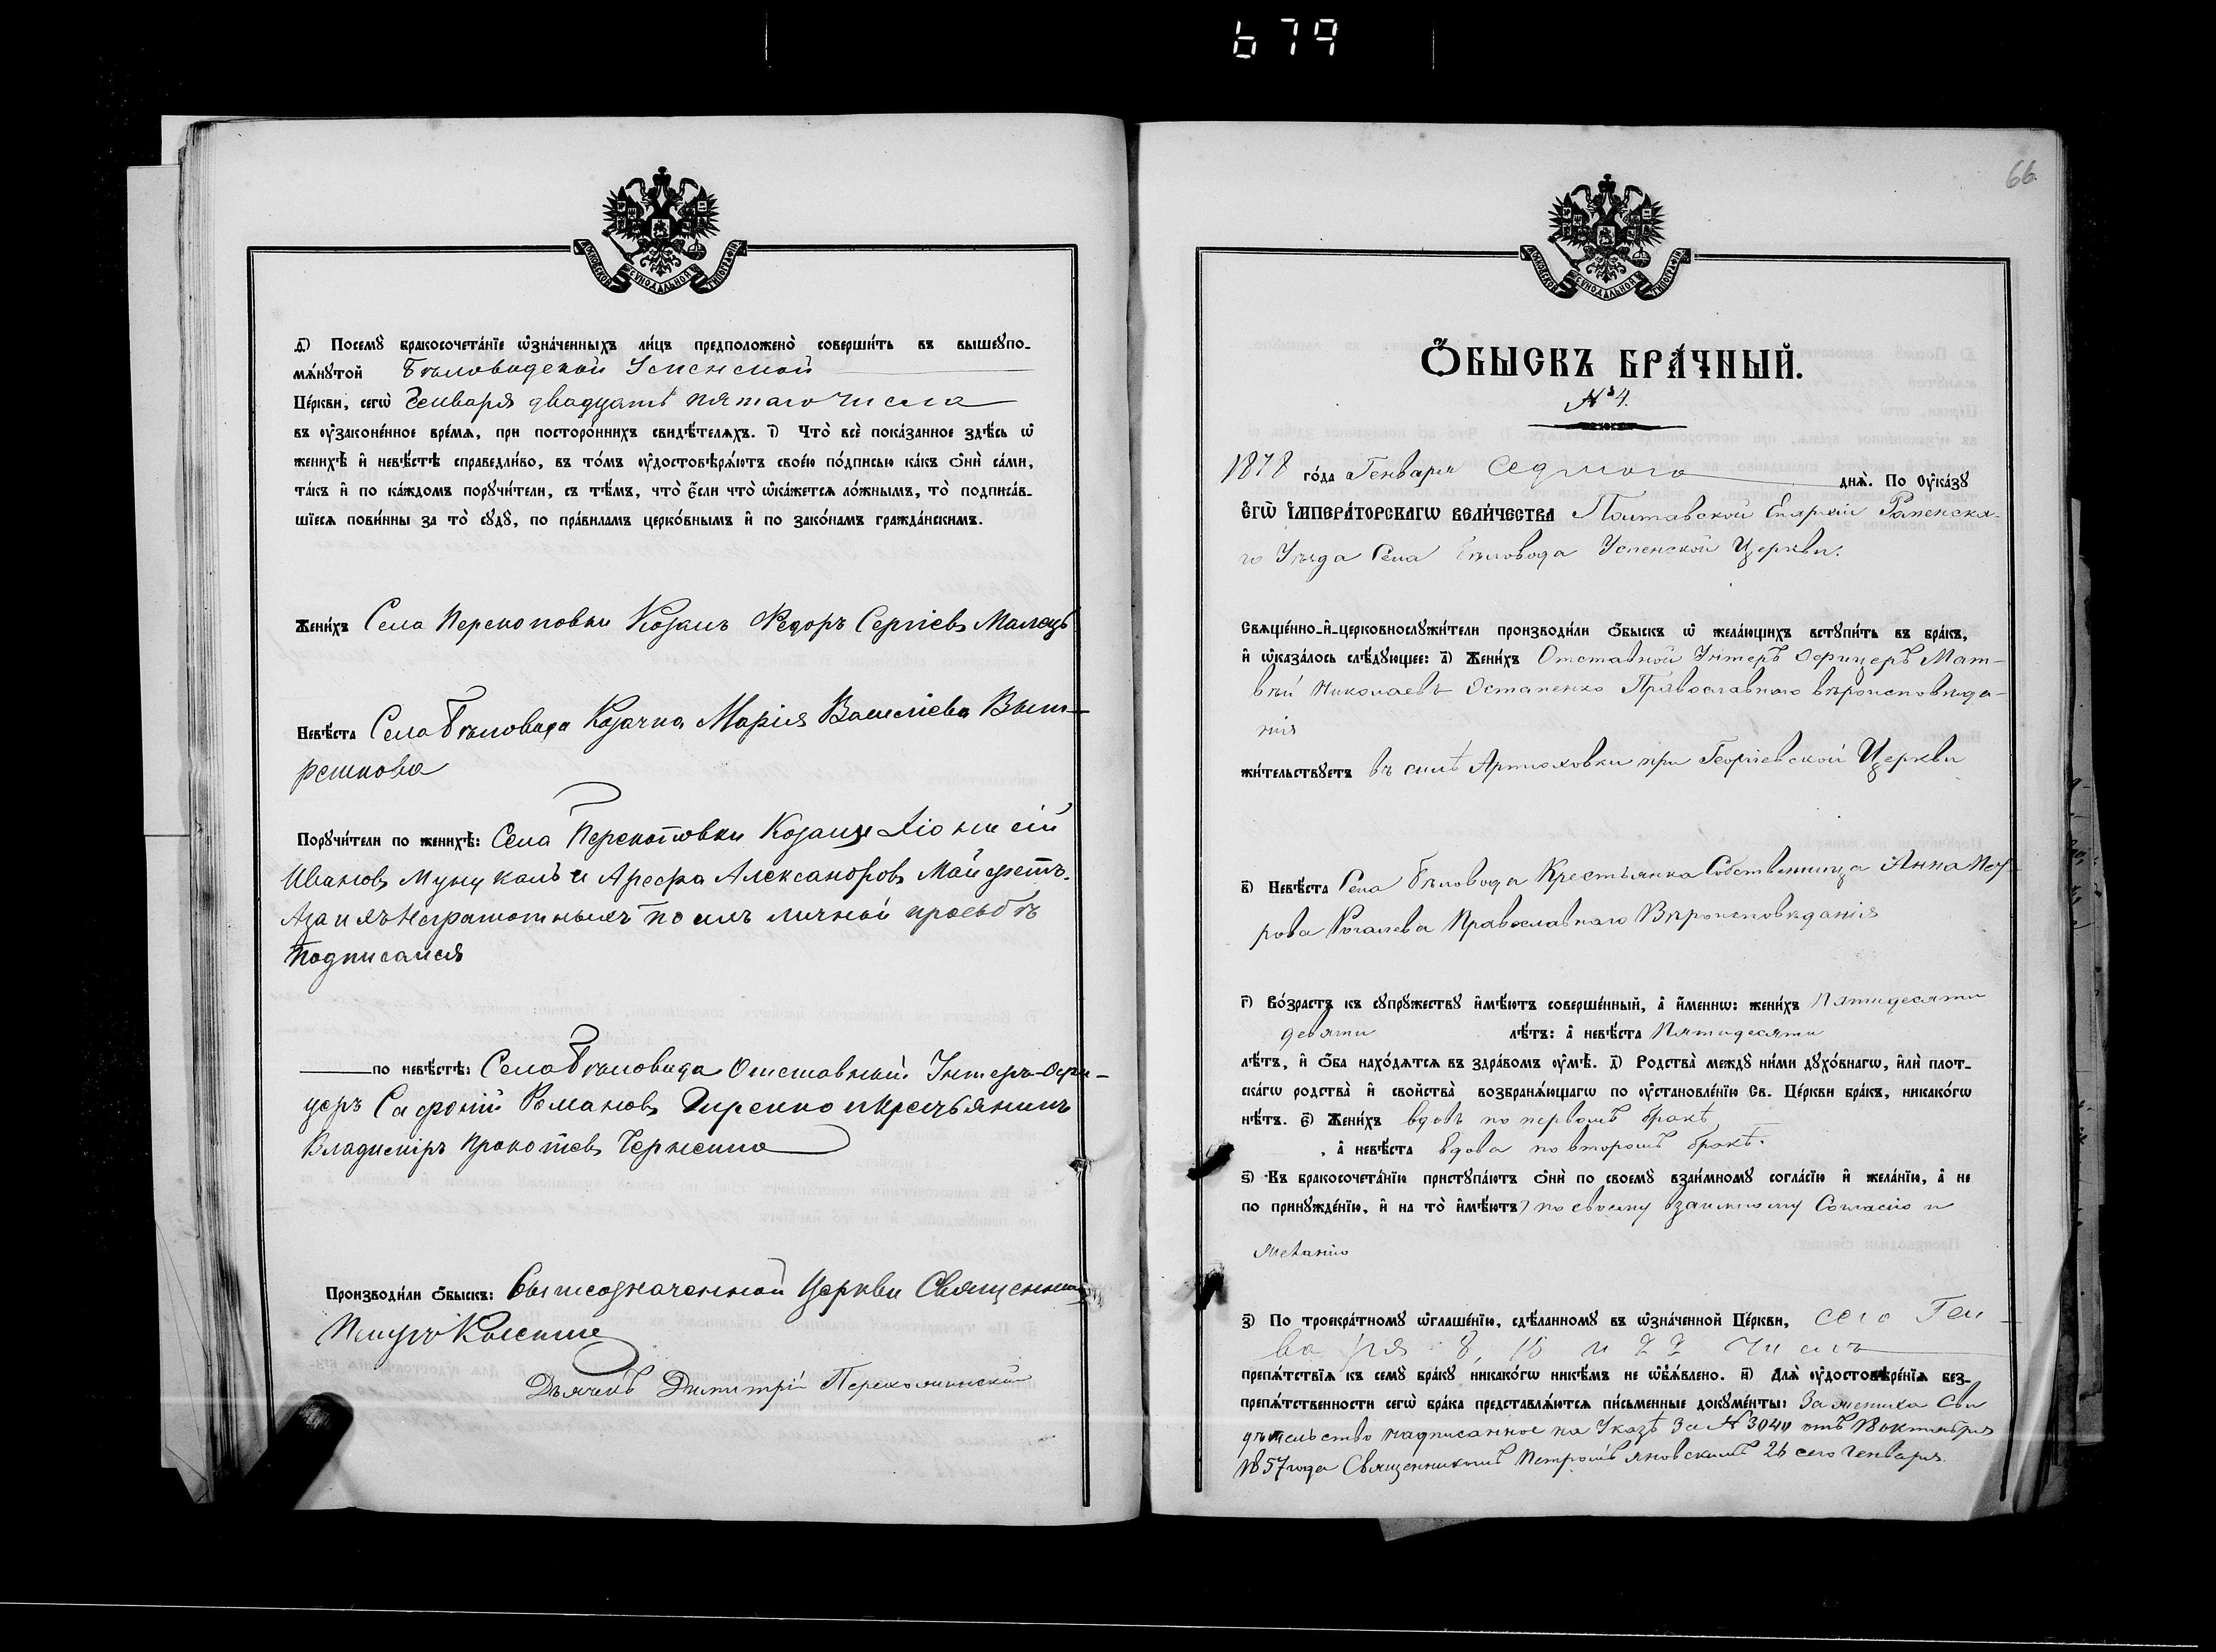 679
МОСКОВСКОЙ СѴНОДАЛЬНОЙ ТИПОГРАФІИ
д҃) Посемꙋ бракосочета́нїе ѡ҆зна́ченныхъ ли́цъ предположено̀ соверши́ть въ вышеꙋпо-
мѧ́нꙋтой Бѣловодской Успенской
Це́ркви, сегѡ̀ Генваря двадцать пятаго числа
въ оу҆законе́нное вре́мѧ, при посторо́ннихъ свидѣ́телѧхъ. і҃) Что̀ всѐ пока́занное здѣ́сь ѡ҆
женихѣ̀ и҆ невѣ́стѣ справедли́во, въ то́мъ оу҆достовѣрѧ́ютъ свое́ю по́дписью ка́къ ѻ҆нѝ са́ми,
та́къ и҆ по ка́ждомъ порꙋчи́тели, съ тѣ́мъ, что̀ є҆́сли что̀ ѡ҆ка́жетсѧ ло́жнымъ, то̀ подписа́в-
шїесѧ пови́нны за то̀ сꙋдꙋ̀, по пра́виламъ церко́внымъ и҆ по зако́намъ гражда́нскимъ.
Жени́хъ Села Перекоповки Козакъ Федоръ Сергіевъ Малецъ
Невѣ́ста Села Бѣловода Козачка Марія Василіева Выт-
решкова
Порꙋчи́тели по женихѣ̀: Села Перекоповки Козаки Діонисій
Ивановъ и Арефа Александровъ Майфетъ.
А за ихъ неграмотныхъ по ихъ личной просьбѣ
подписался
по невѣ́стѣ: Села Бѣловода Отставный Унтеръ-Офи-
церъ Сафоній Романовъ Диренко и крестьянинъ
Владиміръ Прокопіевъ
Производи́ли ѻ҆́быскъ: Вышеозначенной Церкви Священникъ
Петръ
Дьячекъ Димитрій
66
МОСКОВСКОЙ СѴНОДАЛЬНОЙ ТИПОГРАФІИ
Ѻ҆́БЫСКЪ БРА́ЧНЫЙ.
№ 4.
1878 го́да Генваря Седмого днѧ̀. По Оу҆ка́зꙋ
Є҆ГѠ̀ І҆МПЕРА́ТОРСКАГѠ ВЕЛИ́ЧЕСТВА Полтавской Епархіи Роменска-
го Уѣзда Села Бѣловода Успенской Церкви.
Свѧще́нно-и҆-церковнослꙋжи́тели производи́ли ѻ҆́быскъ ѡ҆ жела́ющихъ встꙋпи́ть въ бра́къ,
и҆ ѡ҆каза́лось слѣ́дꙋющее: а҃) Жени́хъ Отставной Унтеръ Офицеръ Мат-
вѣй Николаевъ Остапенко Православнаго вѣроисповѣда-
нія
жи́тельствꙋетъ въ селѣ Артюховки при Георгіевской Церкви
в҃) Невѣ́ста Села Бѣловода Крестьянка Собственница Анна
Рогалева Православнаго Вѣроисповѣданія
г҃) Во́зрастъ къ сꙋпрꙋ́жествꙋ и҆мѣ́ютъ соверше́нный, а҆ и҆́менно: жени́хъ Пятидесяти
девяти лѣ́тъ: а҆ невѣ́ста Пятидесяти
лѣ́тъ, и҆ ѻ҆́ба нахо́дѧтсѧ въ здра́вомъ оу҆мѣ̀. д҃) Родства̀ междꙋ ни́ми дꙋхо́внагѡ, и҆лѝ плот-
ска́гѡ родства̀ и҆ свойства̀ возбранѧ́ющагѡ по оу҆становле́нїю Св. Це́ркви бра́къ, никако́гѡ
нѣ́тъ. є҃) Жени́хъ вдовъ по первомъ бракѣ
, а҆ невѣ́ста вдова по второмъ бракѣ.
ѕ҃) Въ бракосочета́нїю пристꙋпа́ютъ ѻ҆нѝ по своемꙋ̀ взаи́мномꙋ согла́сїю и҆ жела́нїю, а҆ не
по принꙋжде́нїю, и҆ на то̀ и҆мѣ́ютъ по своему взаимному Согласію и
желанію
з҃) По троекра́тномꙋ ѡ҆глаше́нїю, сдѣ́ланномꙋ въ ѡ҆зна́ченной Це́ркви, сего Ген-
варя 8, 15 и 22 числъ
препѧ́тствїѧ къ семꙋ̀ бра́кꙋ никако́гѡ никѣ́мъ не ѡ҆б̾ѧ́влено. и҃) Длѧ̀ оу҆достовѣре́нїѧ без-
препѧ́тственности сегѡ̀ бра́ка представлѧ́ютсѧ пи́сьменные докꙋме́нты: За жениха Сви
дѣтельство надписанное на Указѣ за № 3040 отъ 18 октября
1857 года Священникомъ Петромъ Яновскимъ 26 сего Генваря.